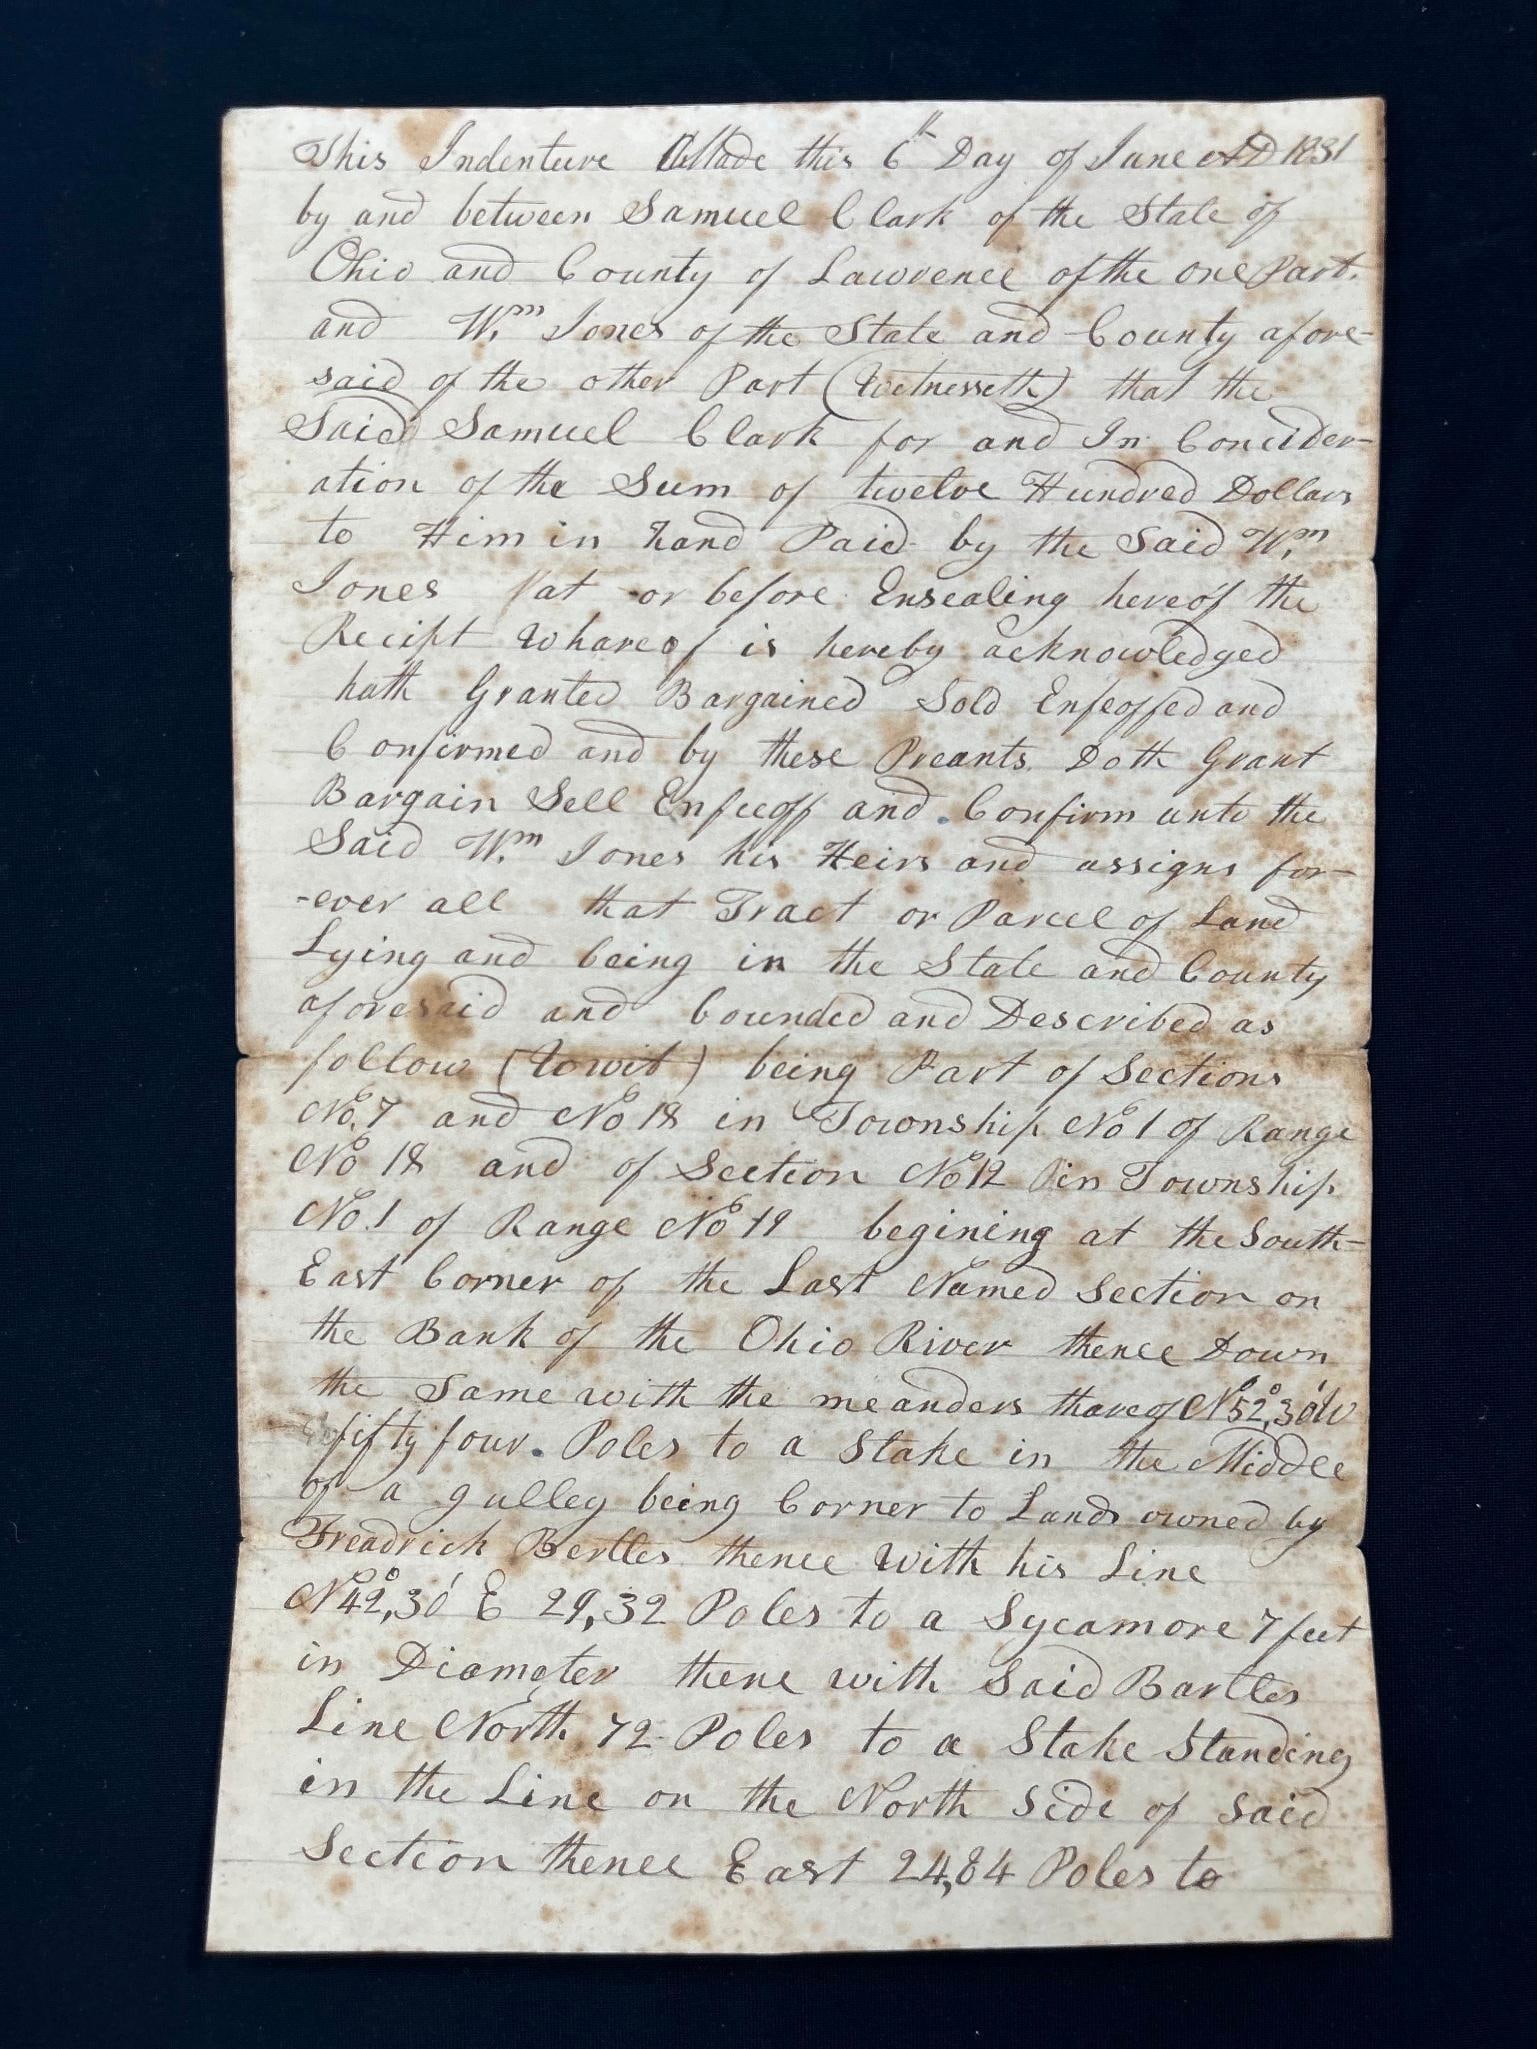 This Indenture Made this 6th Day of June AD 1831
by and between Samuel Clark of the State of
Ohio and County of Lawrence of the one Part.
and Wm Jones of the State and County afore-
said of the other Part (Witnesseth) that the
Said Samuel Clark for and In Concider-
ation of the Sum of twelve Hundred Dollars
to Him in hand Paid by the Said Wm
Jones at or before Ensealing hereof the
Recipt Whareof is hereby acknowledged
hath Granted Bargained Sold Enfeoffed and
Confirmed and by these Preants Doth Grant
Bargain Sell Enfeeoff and Confirm unto the
Said Wm Jones his Heirs and assigns for-
-ever all that Tract or Parcel of Land
Lying and being in the State and County
aforesaid and bounded and Described as
follow (towit) being Part of Sections
No. 7 and No 18 in Township No 1 of Range
No 18 and of Section No 12 in Township
No. 1 of Range No 19 begining at the South-
East Corner of the Last Named Section on
the Bank of the Ohio River thence Down
the Same with the meanders thareof N 52°, 30' W
fifty four. Poles to a Stake in the Middle
of a gulley being Corner to Lands owned by
Freadrick Bertles thence With his Line
N 42°, 30' E 29,32 Poles to a Sycamore 7 feet
in Diameter thene with Said Bartles
Line North 72 Poles to a Stake Standing
in the Line on the North Side of Said
Section thence East 24,84 Poles to